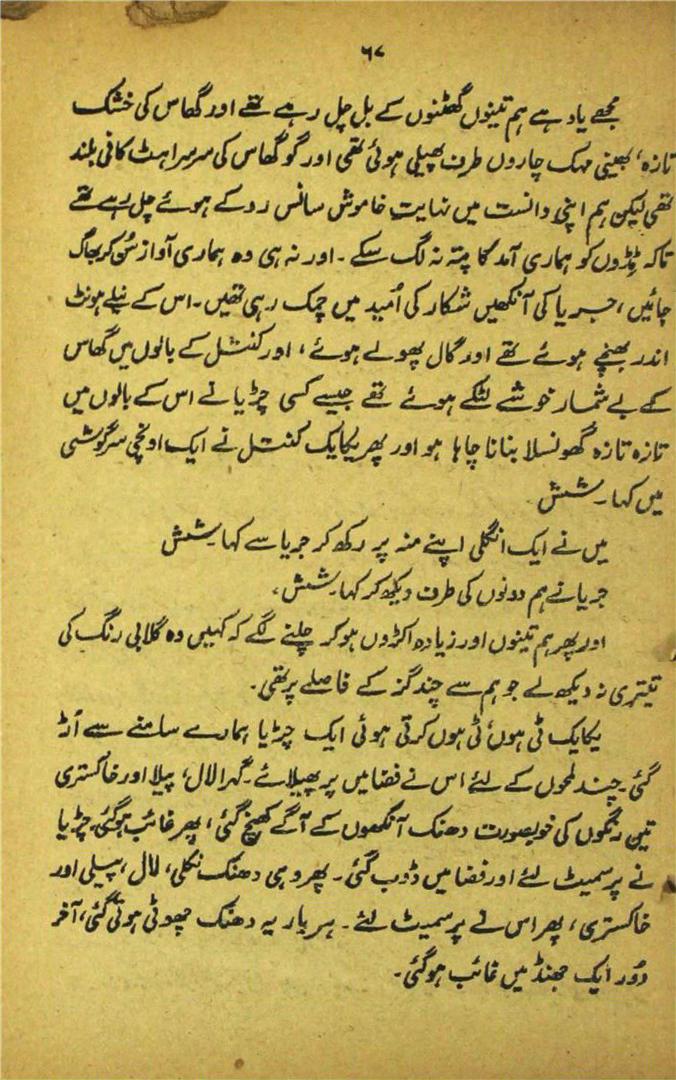 ۶۷
مجھے یاد ہے ہم تینوں گھٹنوں کے بل چل رہے تھے اور گھاس کی خشک
تازہ، بھینی مہک چاروں طرف پھیلی ہوئی تھی اور گو گھاس کی سرسراہٹ کافی بلند
تھی لیکن ہم اپنی دانست میں نہایت خاموش سانس روکے ہوئے چل رہے تھے
تاکہ ٹڈوں کو ہماری آمد کا پتہ نہ لگ سکے ۔ اور نہ ہی وہ ہماری آواز سُن کر بھاگ
جائیں، جریا کی آنکھیں شکار کی اُمید میں چمک رہی تھیں۔ اس کے نیلے ہونٹ
اندر بھینچے ہوئے تھے اور گال پھولے ہوئے، اور کنتل کے بالوں میں گھاس
کے بے شمار خوشے لٹکے ہوئے تھے جیسے کسی چڑیا نے اس کے بالوں میں
تازہ تازہ گھونسلا بنانا چاہا ہو اور پھر یکایک کنتل نے ایک اونچی سرگوشی
میں کہا۔ شش
میں نے ایک انگلی اپنے منہ پر رکھ کر جریا سے کہا۔ شش
جریا نے ہم دونوں کی طرف دیکھ کر کہا۔ شش،
اور پھر ہم تینوں اور زیادہ اکڑوں ہو کر چلنے لگے کہ کہیں وہ گلابی رنگ کی
تیتری نہ دیکھ لے جو ہم سے چند گز کے فاصلے پر تھی۔
یکایک ٹی ہوں ٹی ہوں کرتی ہوئی ایک چڑیا ہمارے سامنے سے اُڑ
گئی۔ چند لمحوں کے لئے اس نے فضا میں پر پھیلائے۔ گہرا لال، پیلا اور خاکستری
تین رنگوں کی خوبصورت دھنک آنکھوں کے آگے کھنچ گئی، پھر غائب ہوگئی۔ چڑیا
نے پر سمیٹ لئے اور فضا میں ڈوب گئی ۔ پھر وہی دھنک نکلی، لال، پیلی اور
خاکستری، پھر اس نے پر سمیٹ لئے ۔ ہر بار یہ دھنک چھوٹی ہوتی گئی، آخر
دُور ایک جھنڈ میں غائب ہوگئی۔